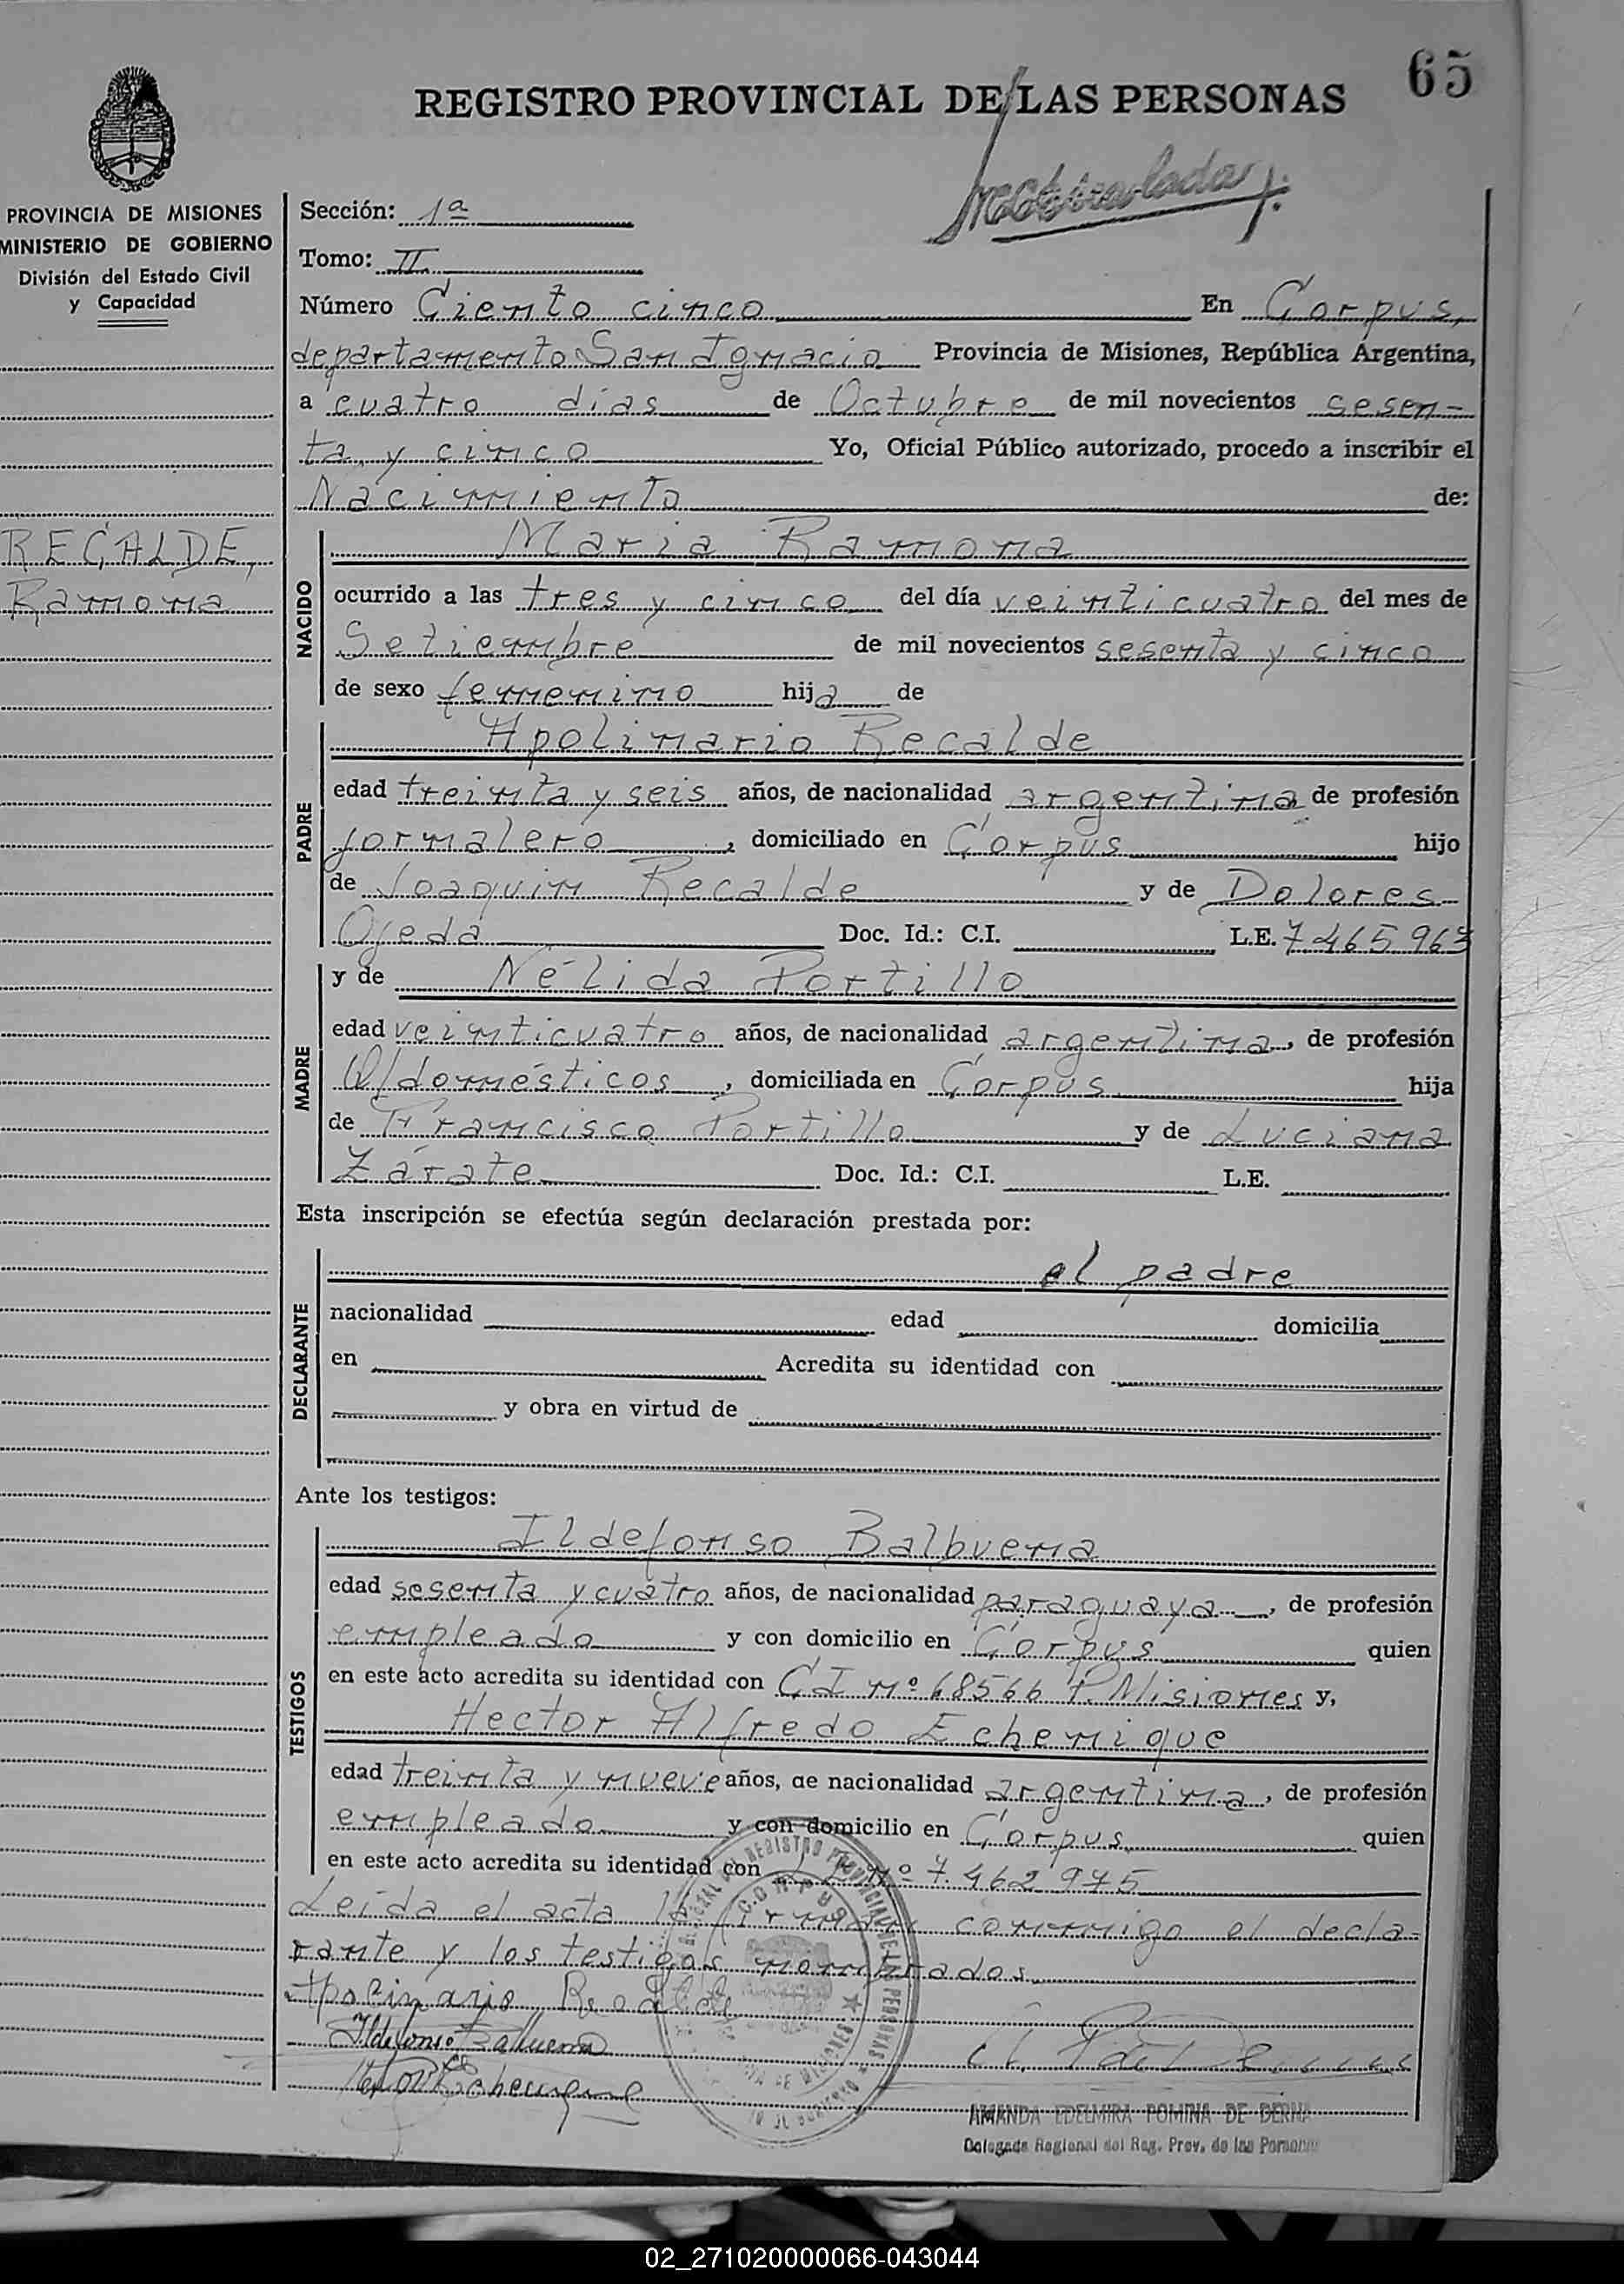 65
REGISTRO PROVINCIAL DE LAS PERSONAS
Matriculada
PROVINCIA DE MISIONES
MINISTERIO DE GOBIERNO
División del Estado Civil
y Capacidad
RECALDE,
Ramona
Sección: 1ª
Tomo: II
Número Ciento cinco En Corpus,
departamento San Ignacio Provincia de Misiones, República Argentina,
a cuatro dias de Octubre de mil novecientos sesen-
ta y cinco Yo, Oficial Público autorizado, procedo a inscribir el
Nacimiento de:
NACIDO
Maria Ramona
ocurrido a las tres y cinco del día veinticuatro del mes de
Setiembre de mil novecientos sesenta y cinco
de sexo femenino hija de
PADRE
Apolinario Recalde
edad treinta y seis años, de nacionalidad argentina de profesión
jornalero, domiciliado en Corpus hijo
de Joaquin Recalde y de Dolores
Ojeda Doc. Id.: C.I. L.E. 7465963
MADRE
y de Nélida Portillo
edad veinticuatro años, de nacionalidad argentina, de profesión
Q/domésticos, domiciliada en Corpus hija
de Francisco Portillo y de Luciana
Zárate Doc. Id.: C.I. L.E.
Esta inscripción se efectúa según declaración prestada por:
DECLARANTE
el padre
nacionalidad edad domicilia
en Acredita su identidad con
y obra en virtud de
Ante los testigos:
TESTIGOS
Ildefonso Balbuena
edad sesenta y cuatro años, de nacionalidad paraguaya, de profesión
empleado y con domicilio en Corpus quien
en este acto acredita su identidad con CI nº 68566 P. Misiones y,
Hector Alfredo Echenique
edad treinta y nueve años, de nacionalidad argentina, de profesión
empleado y con domicilio en Corpus quien
en este acto acredita su identidad con nº 7.462975
Leida el acta la firman conmigo el decla-
rante y los testigos nombrados.
Apolinario Recalde
Ildefonso Balbuena
Echenique
CORPUS
AMANDA EDELMIRA POMINA DE BERNA
Delegada Regional del Reg. Prov. de las Personas
02_271020000066-043044